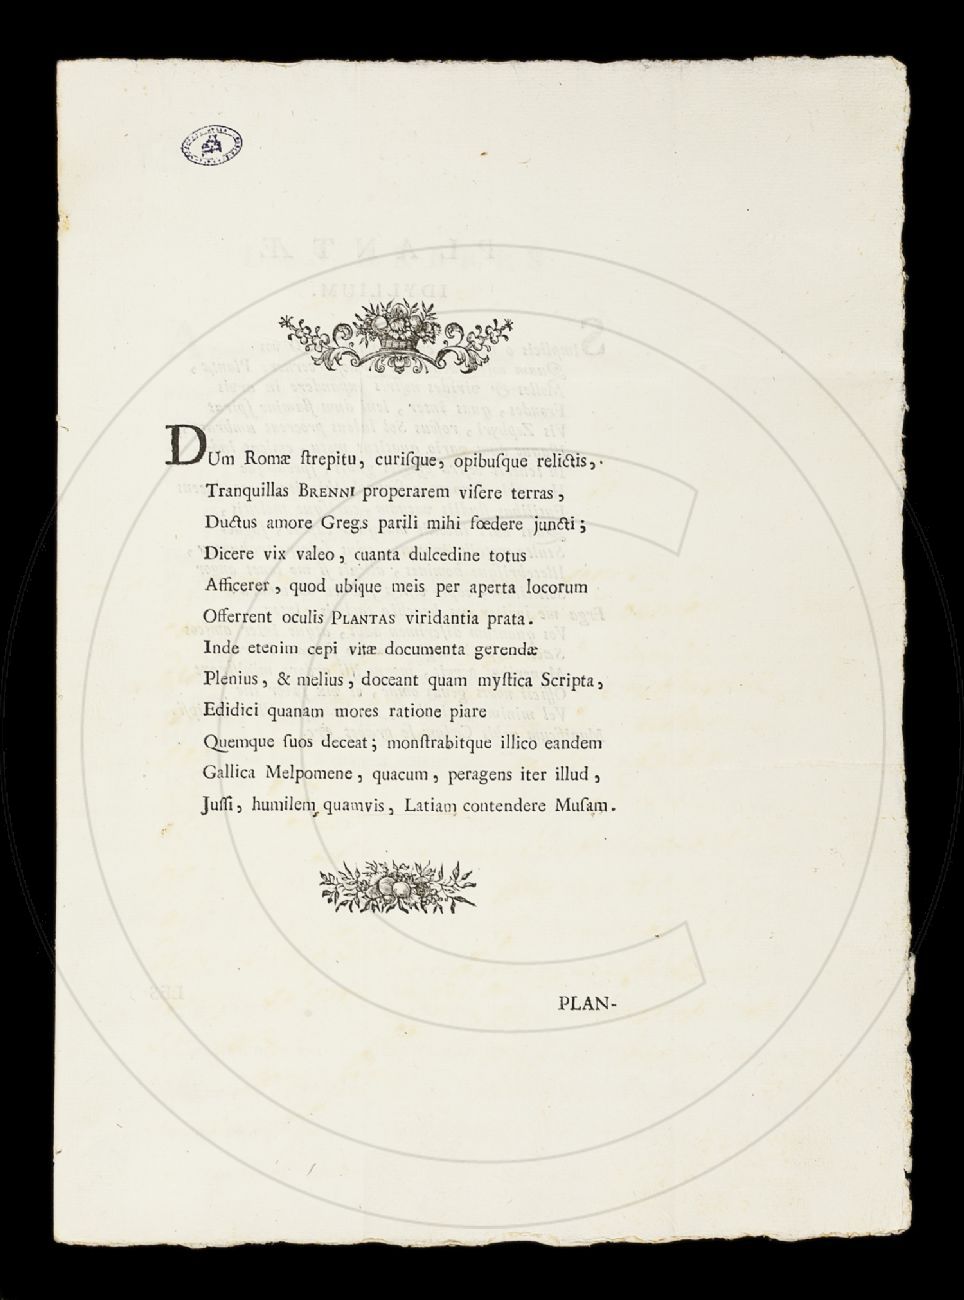 DUm Romæ ſtrepitu, curiſque, opibuſque relictis,
Tranquillas BRENNI properarem viſere terras,
Ductus amore Greg.s parili mihi fœdere juncti;
Dicere vix valeo, cuanta dulcedine totus
Afficerer, quod ubique meis per aperta locorum
Offerrent oculis PLANTAS viridantia prata.
Inde etenim cepi vitæ documenta gerendæ
Plenius, & melius, doceant quam myſtica Scripta,
Edidici quanam mores ratione piare
Quemque ſuos deceat; monſtrabitque illico eandem
Gallica Melpomene, quacum, peragens iter illud,
Juſſi, humilem quamvis, Latiam contendere Muſam.
PLAN-